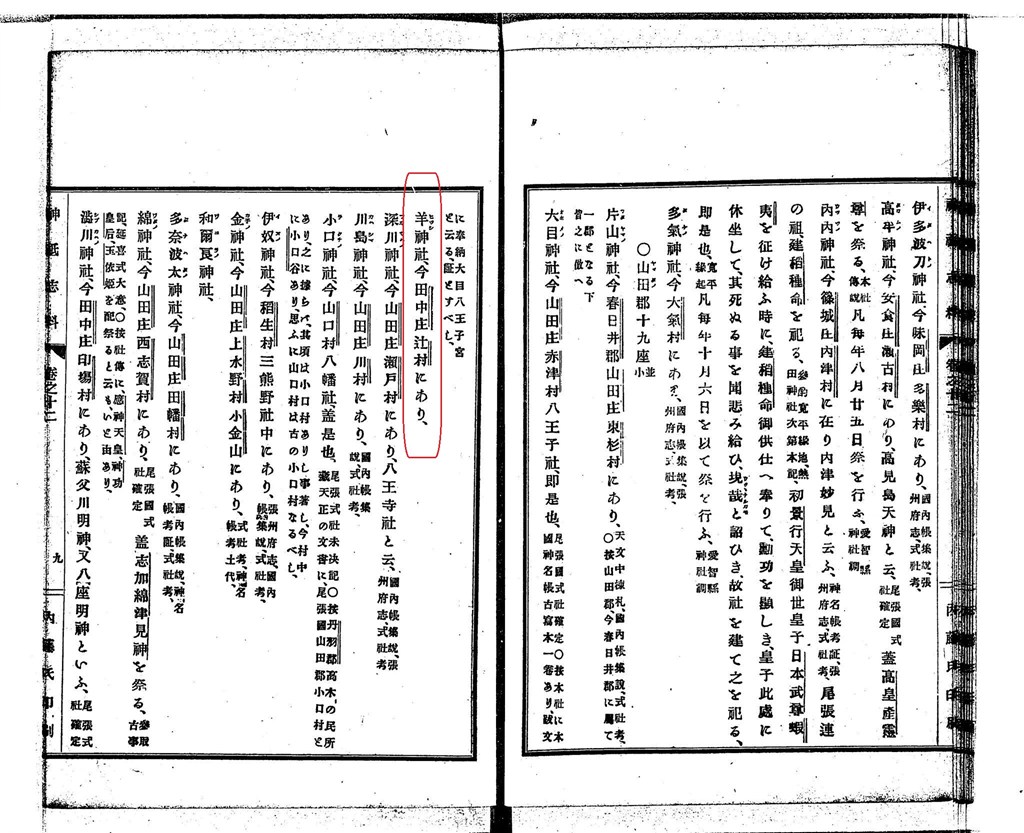 伊多波刀神社、今味岡庄多樂村にあり、國內帳集說、張州府志、式社考、
高牟神社、今安食庄瀬古村にあり高見島天神と云、尾張國式社確定 蓋高皇產靈
尊を祭る、本社傳說凡每年八月廿五日祭を行ふ、愛智縣神社調
內內神社、今篠城庄內津村に在り內津妙見と云ふ、神名帳考証、張州府志、式社考、尾張連
の祖、建稻種命を祀る、參酌寬平緣起、熱田神社次第本記、初景行天皇御世皇子日本武尊蝦
夷を征け給ふ時に、建稻種命御供仕へ奉りて、勳功を顯しき、皇子此處に
休坐して、其死ぬる事を聞悲み給ひ、現哉と詔ひき、故社を建て之を祀る、
即是也、寬平緣起凡每年十月六日を以て祭を行ふ、愛智縣神社調
多氣神社、今大氣村にあり、國內帳集說、張州府志、式社考、
〇山田郡十九座並小
片山神社、今春日井郡山田庄東杉村にあり、天文中棟札、國內帳集說、式社考、〇按山田郡今春日井郡に屬て
一郡となる下皆之に倣へ
大目神社、今山田庄赤津村八王子社、即是也、尾張國式社確定〇按本社に本國神名帳古寫本一卷あり、跋文
に奉納大目八王子宮と云る証とすべし、
羊神社、今田中庄辻村にあり、
深川神社、今山田庄瀨戶村にあり、八王寺社と云、國內帳集說、張州府志、式社考
川島神社、今山田庄川村にあり、國內帳集說、式社考、
小口神社、今山口村八幡社蓋是也、尾張式社未決記〇按丹羽郡高木の民所藏天正の文書に尾張國山田郡小口村と
あり、之に據らば、其頃は小口村ありし事著し、今村中に小口谷あり、思ふに山口村は古の小口村なるべし、
伊奴神社、今稻生村三熊野社中にあり、張州府志、國內帳集說、式社考、
金神社、今山田庄上水野村小金山にあり、式社考、神名帳考土代、
和爾良神社、
多奈波太神社、今山田庄田幡村にあり、國內帳集說、神名帳考証、式社考、
綿神社、今山田庄西志賀村にあり、尾張國式社確定 盖志加綿津見神を祭る、參取古事
記、延喜式大意〇按社傳に、應神天皇、神功皇后、玉依姫を配祭ると云ともいと由あり、
澁川神社、今田中庄印塲村にあり、蘇父川明神、又八座明神といふ、尾張式社確定
神祇志料
卷之十二
九
內藤氏印刷